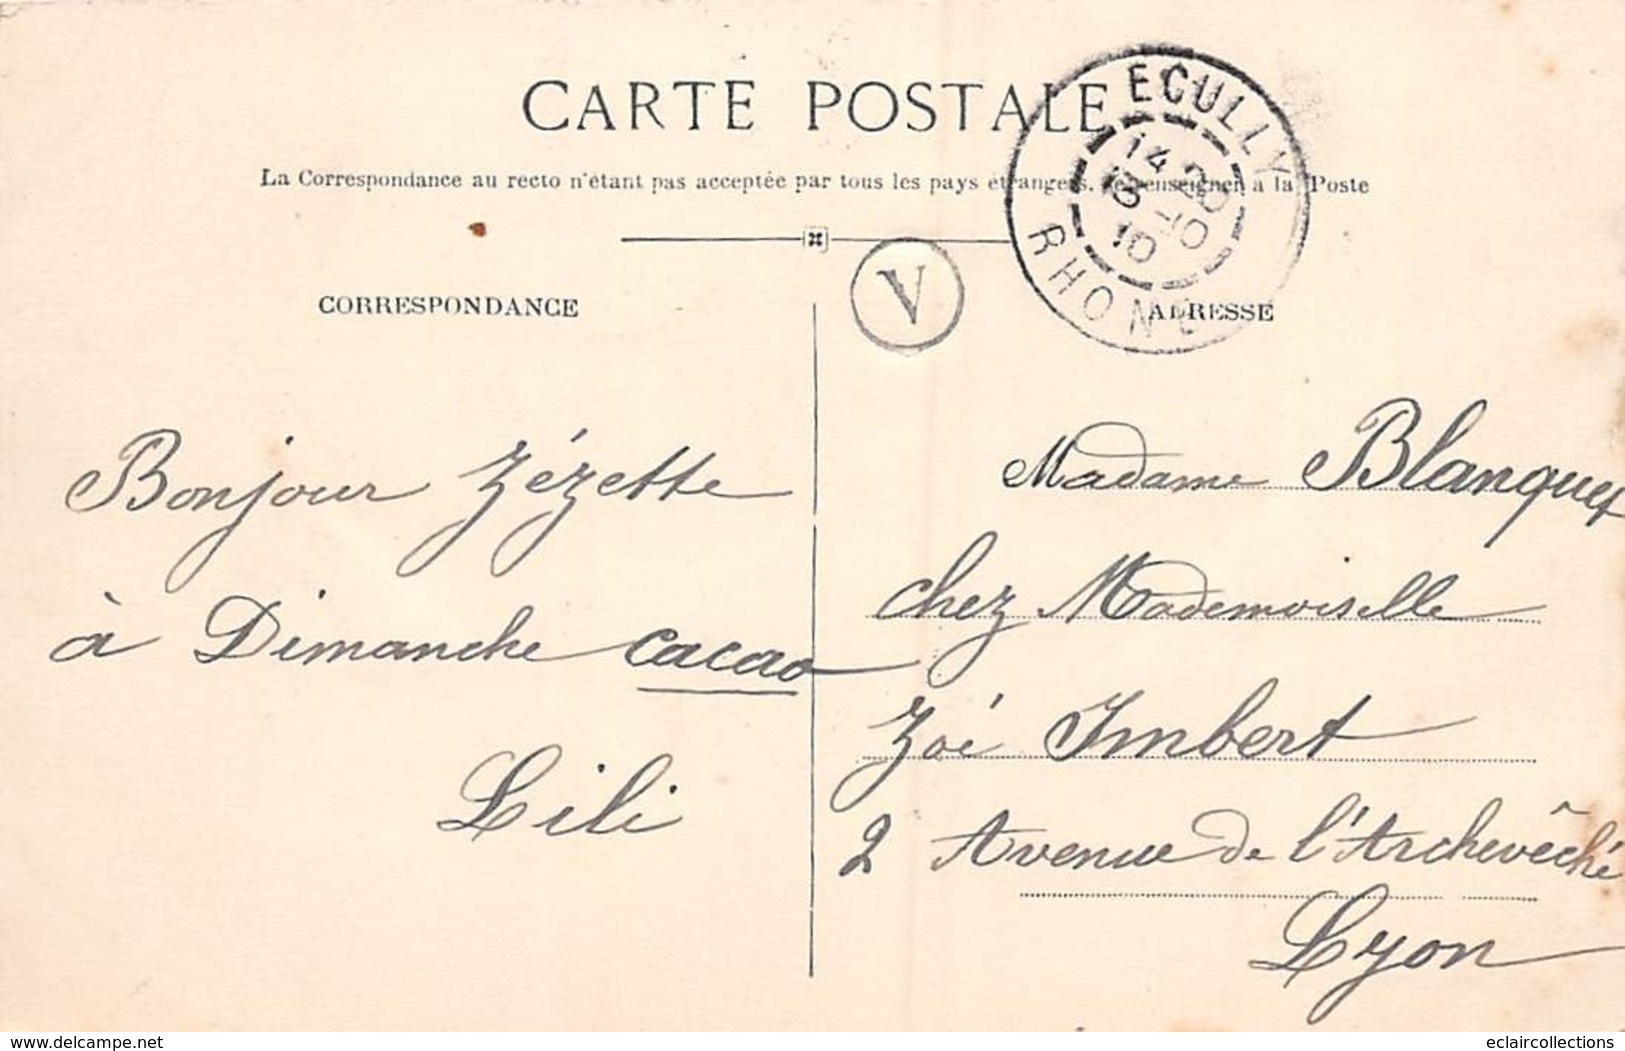 CARTE POSTALE
La Correspondance au recto n'étant pas acceptée par tous les pays étrangers, se renseigner à la Poste
ECULLY
14 20
10 -10
RHONE
V
CORRESPONDANCE
ADRESSE
Bonjour Zézette
à Dimanche cacao
Lili
Madame Blanquet
chez Mademoiselle
Zoé Imbert
2 Avenue de l'Archevêché
Lyon
www.delcampe.net
eclaircollections